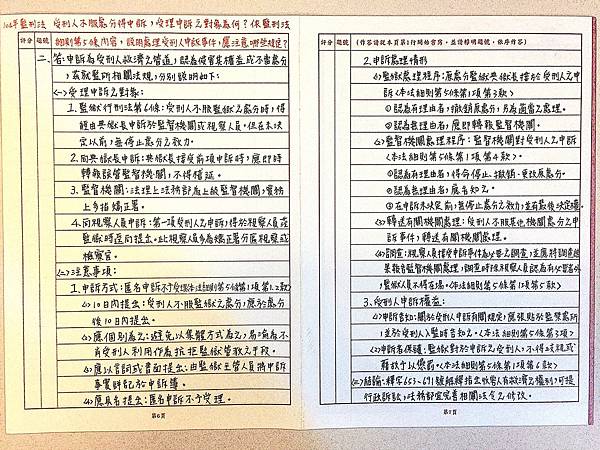 104年監刑法 受刑人不服處分得申訴，受理申訴之對象為何？依監刑法
評分 題號 細則第5條內容，說明處理受刑人申訴事件，應注意哪些規定？
二、答：申訴為受刑人救濟之管道，認為侵害某權益或不當處分，
茲就監所相關法規，分別說明如下：
(一)受理申訴之對象：
1.監獄行刑法第6條：受刑人不服監獄之處分時，得
經由典獄長申訴於監督機關或視察人員。但在未決
定以前，無停止處分之效力。
2.向典獄長申訴：典獄長接受前項申訴時，應即時
轉報該管監督機關，不得稽延。
3.監督機關：法理上法務部為上級監督機關，實務
上多指矯正署。
4.向視察人員申訴：第一項受刑人之申訴，得於視察人員蒞
監獄時逕向提出。此視察人員多為矯正署分區視察或
檢察官。
(二)注意事項：
1.申訴方式：匿名申訴不予受理(本法細則第5條第1項第1.2款)
(1)10日內提出：受刑人不服監獄之處分，應於處分
後10日內提出。
(2)應個別為之：避免以集體方式為之，易淪為不
肖受刑人利用作為抗拒監獄管教之手段。
(3)應以言詞或書面提出：由監獄主管人員將申訴
事實詳記於申訴簿。
(4)應具名提出：匿名申訴不予受理。
第6頁
評分 題號 (作答請從本頁第1行開始書寫，並請標明題號，依序作答)
2.申訴處理情形
(1)監獄處理程序：原處分監獄典獄長接於受刑人之申
訴<本法細則第5條第1項第3款>
①認為有理由者，撤銷原處分，另為適當之處理。
②認為無理由者，應即轉報監督機關。
(2)監督機關處理程序：監督機關對受刑人之申訴
<本法細則第5條第1項第4款>。
①認為有理由者，得命停止、撤銷、更改原處分。
②認為無理由者，應告知之。
③在申訴未決定前，無停止處分之效力，並有最後決定權。
(3)轉送有關機關處理：受刑人不服其他機關處分之申
訴事件，轉送有關機關處理。
(4)調查：視察人員接受申訴事件為必要之調查，並應將調查結
果報告監督機關處理，調查時除視察人員認為有必要者外，
監獄人員不得在場。<本法細則第5條第1項第5款>
3.受刑人申訴權益：
(1)申訴告知：關於受刑人申訴有關規定，應張貼於監眾處所
，並於受刑人入監時告知之。<本法細則第5條第2項>
(2)申訴者保護：監獄對於申訴之受刑人，不得歧視或
藉故予以懲罰。<本法細則第5條第1項第6款>
(三)結論：釋字653、691號解釋指出收容人有救濟之權利，可提
行政訴訟，法務部宜完善相關法令之修改。
第7頁